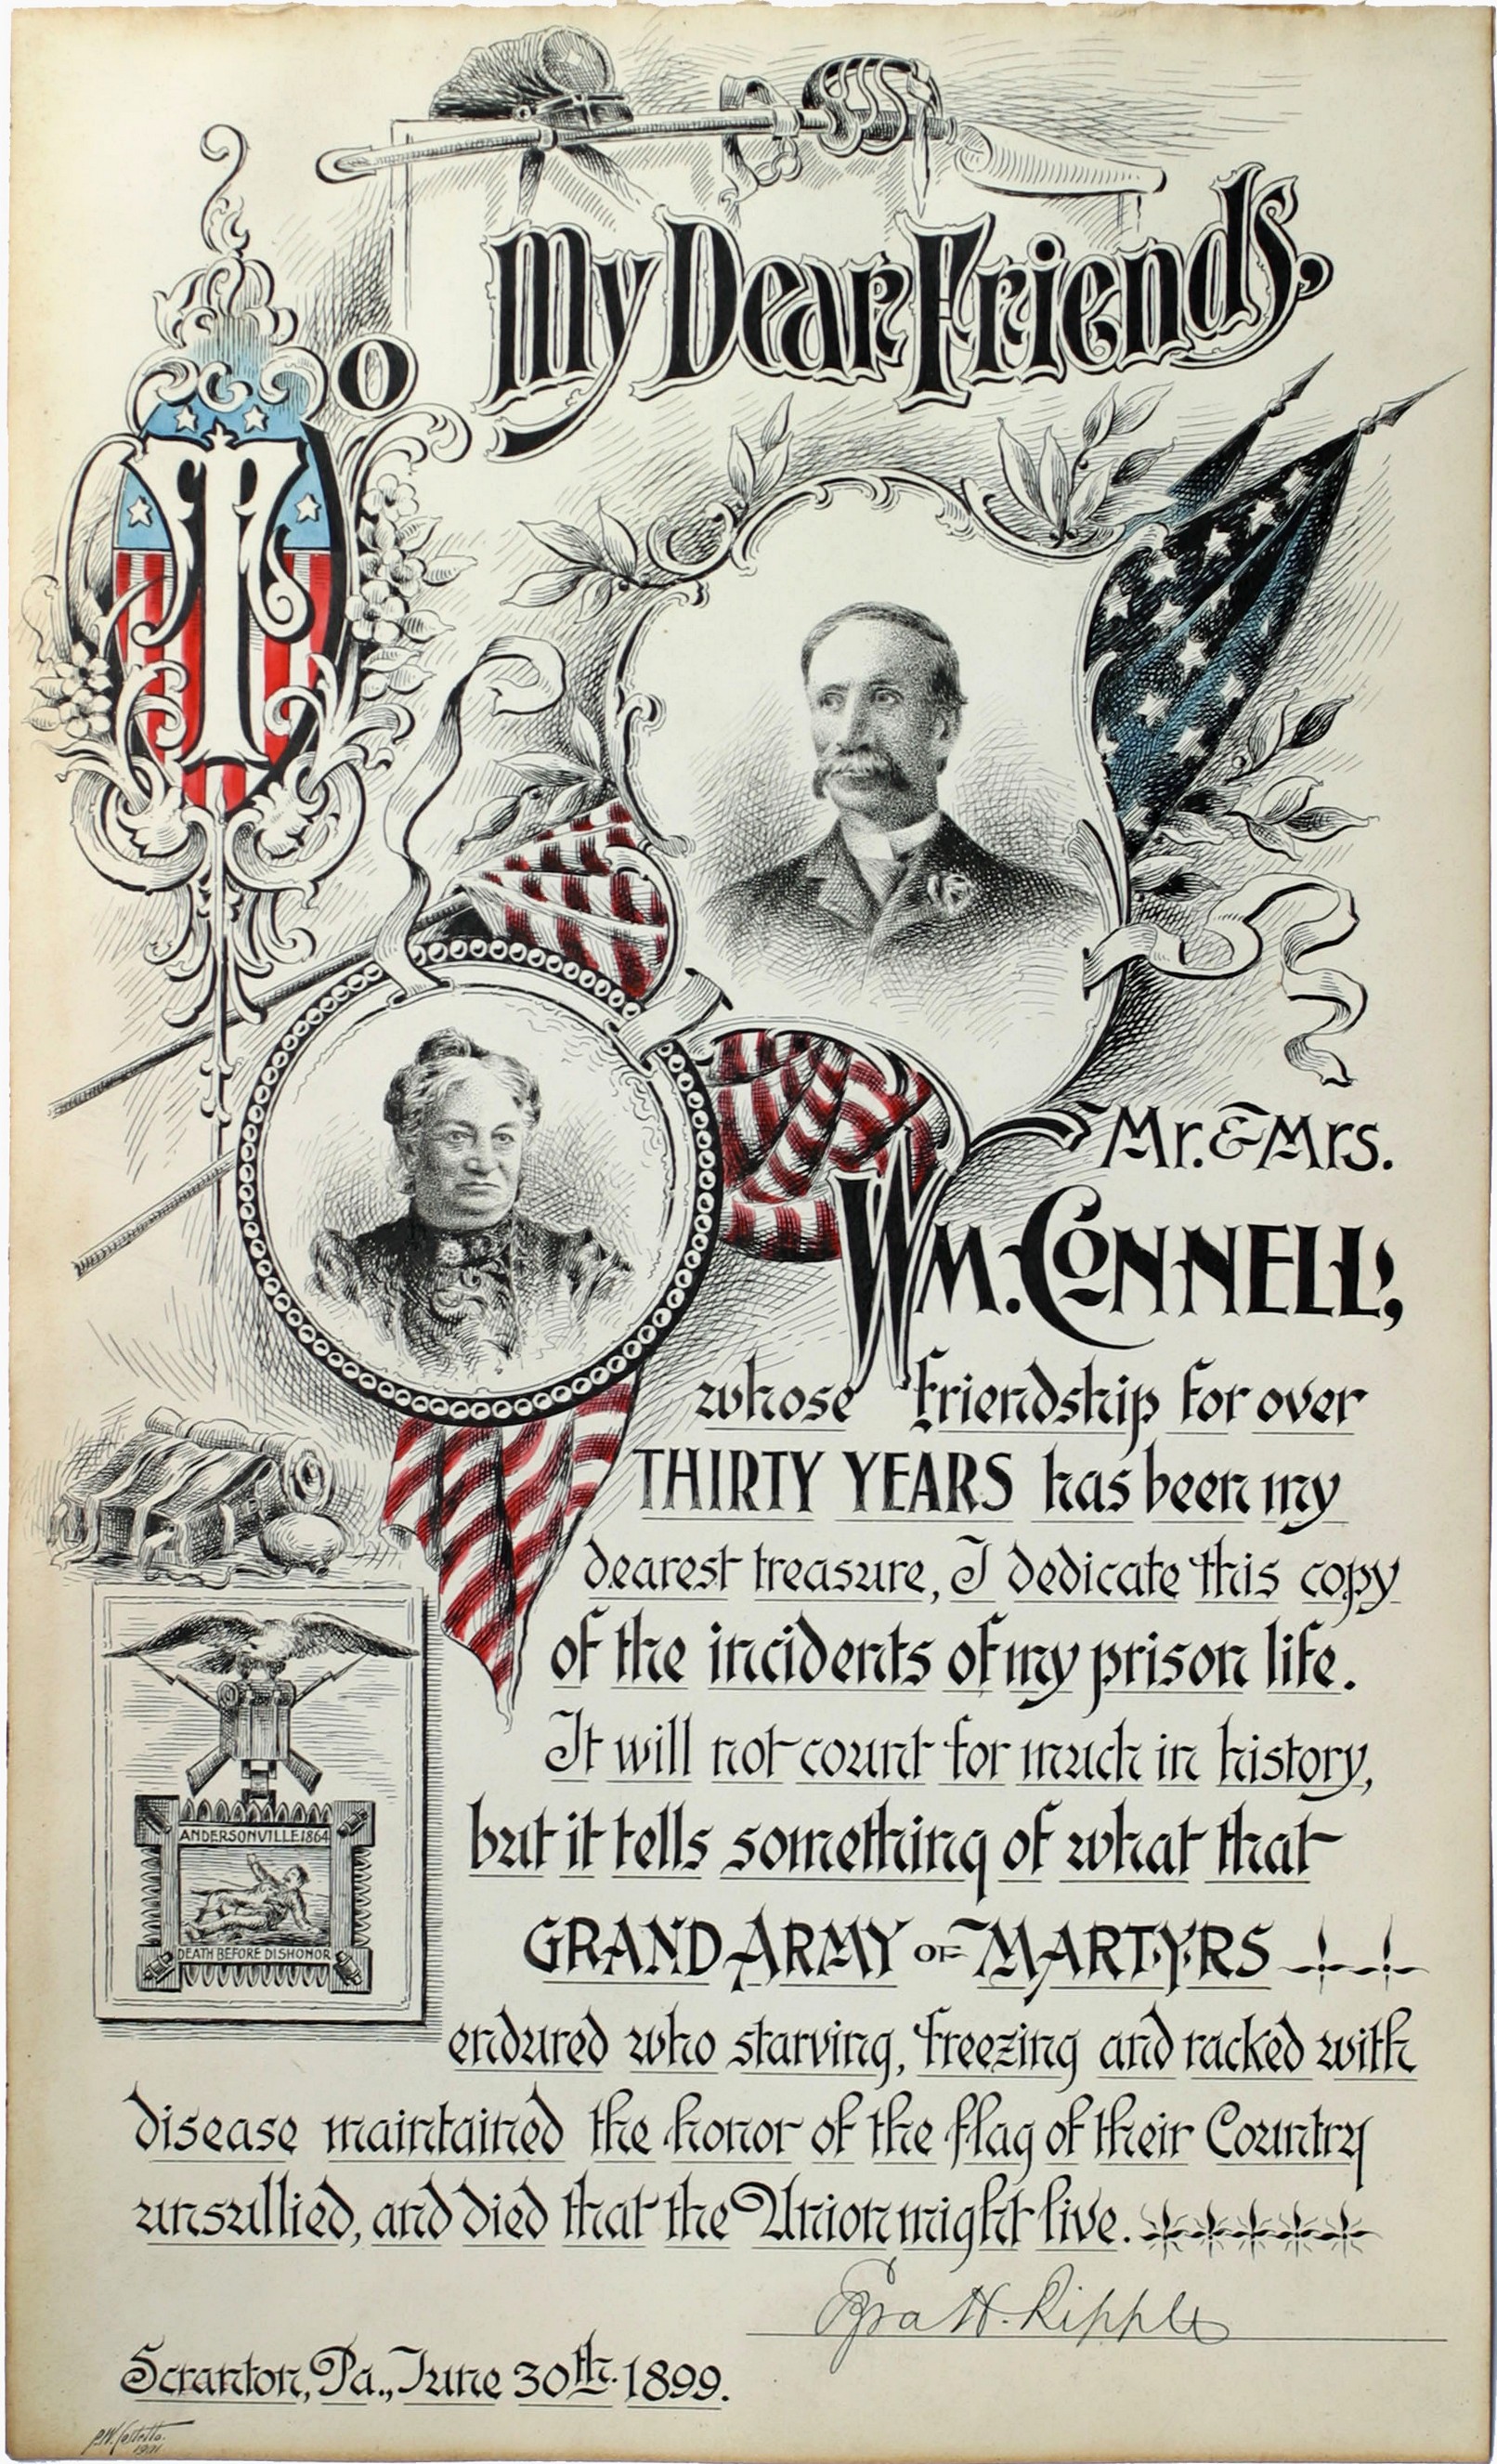 To My Dear Friends,
Mr. & Mrs.
WM. CONNELL,
whose friendship for over
THIRTY YEARS has been my
dearest treasure, I dedicate this copy
of the incidents of my prison life.
It will not count for much in history,
but it tells something of what that
GRAND ARMY OF MARTYRS
endured who starving, freezing and racked with
disease maintained the honor of the flag of their Country
unsullied, and died that the Union might live.
ANDERSONVILLE 1864
DEATH BEFORE DISHONOR
Ezra H. Ripple
Scranton, Pa., June 30th. 1899.
P.W. Costello.
1901